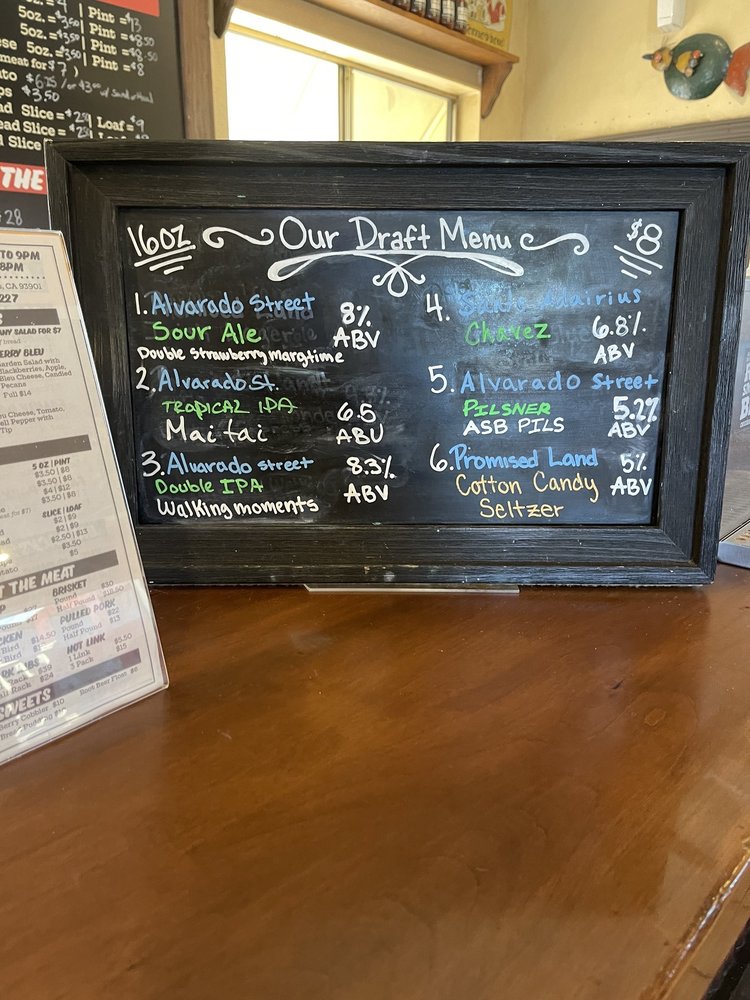 = 4 | Pint = $13
5oz. = $3.50 | Pint = $8.50
5oz. = $3.50 | Pint = $8
meat for $7)
$6.75
$3.50
Slice = $2.50 Loaf = $9
Slice
THE
28
16oz Our Draft Menu $8
1. Alvarado Street
Sour Ale
Double Strawberry margtime
8%
ABV
2. Alvarado St.
TROPICAL IPA
Mai tai
6.5
ABV
3. Alvarado street
Double IPA
Walking moments
8.3%
ABV
4. Sante Adairius
Chavez
6.8%
ABV
5. Alvarado Street
PILSNER
ASB PILS
5.2%
ABV
6. Promised Land
Cotton Candy
Seltzer
5%
ABV
TO 9PM
8PM
CA 93901
227
ANY SALAD FOR $7
bread
ERRY BLEU
Garden Salad with
Blackberries, Apple,
Bleu Cheese, Candied
Pecans
Full $14
Bleu Cheese, Tomato,
Bell Pepper with
Tip
5 OZ | PINT
$3.50 | $8
$3.50 | $8
$4 | $12
$3.50 | $8
SLICE | LOAF
$2 | $9
$2 | $9
$2.50 | $13
$3.50
$5
THE MEAT
BRISKET
Pound $30
Half Pound $18.50
PULLED PORK
Pound $22
Half Pound $13
$14.50
Bird
HOT LINK
1 Link $5.50
3 Pack $15
RIBS
Rack $39
Rack $24
SWEETS
Root Beer Float $8
Berry Cobbler $10
Bread Pudding $10